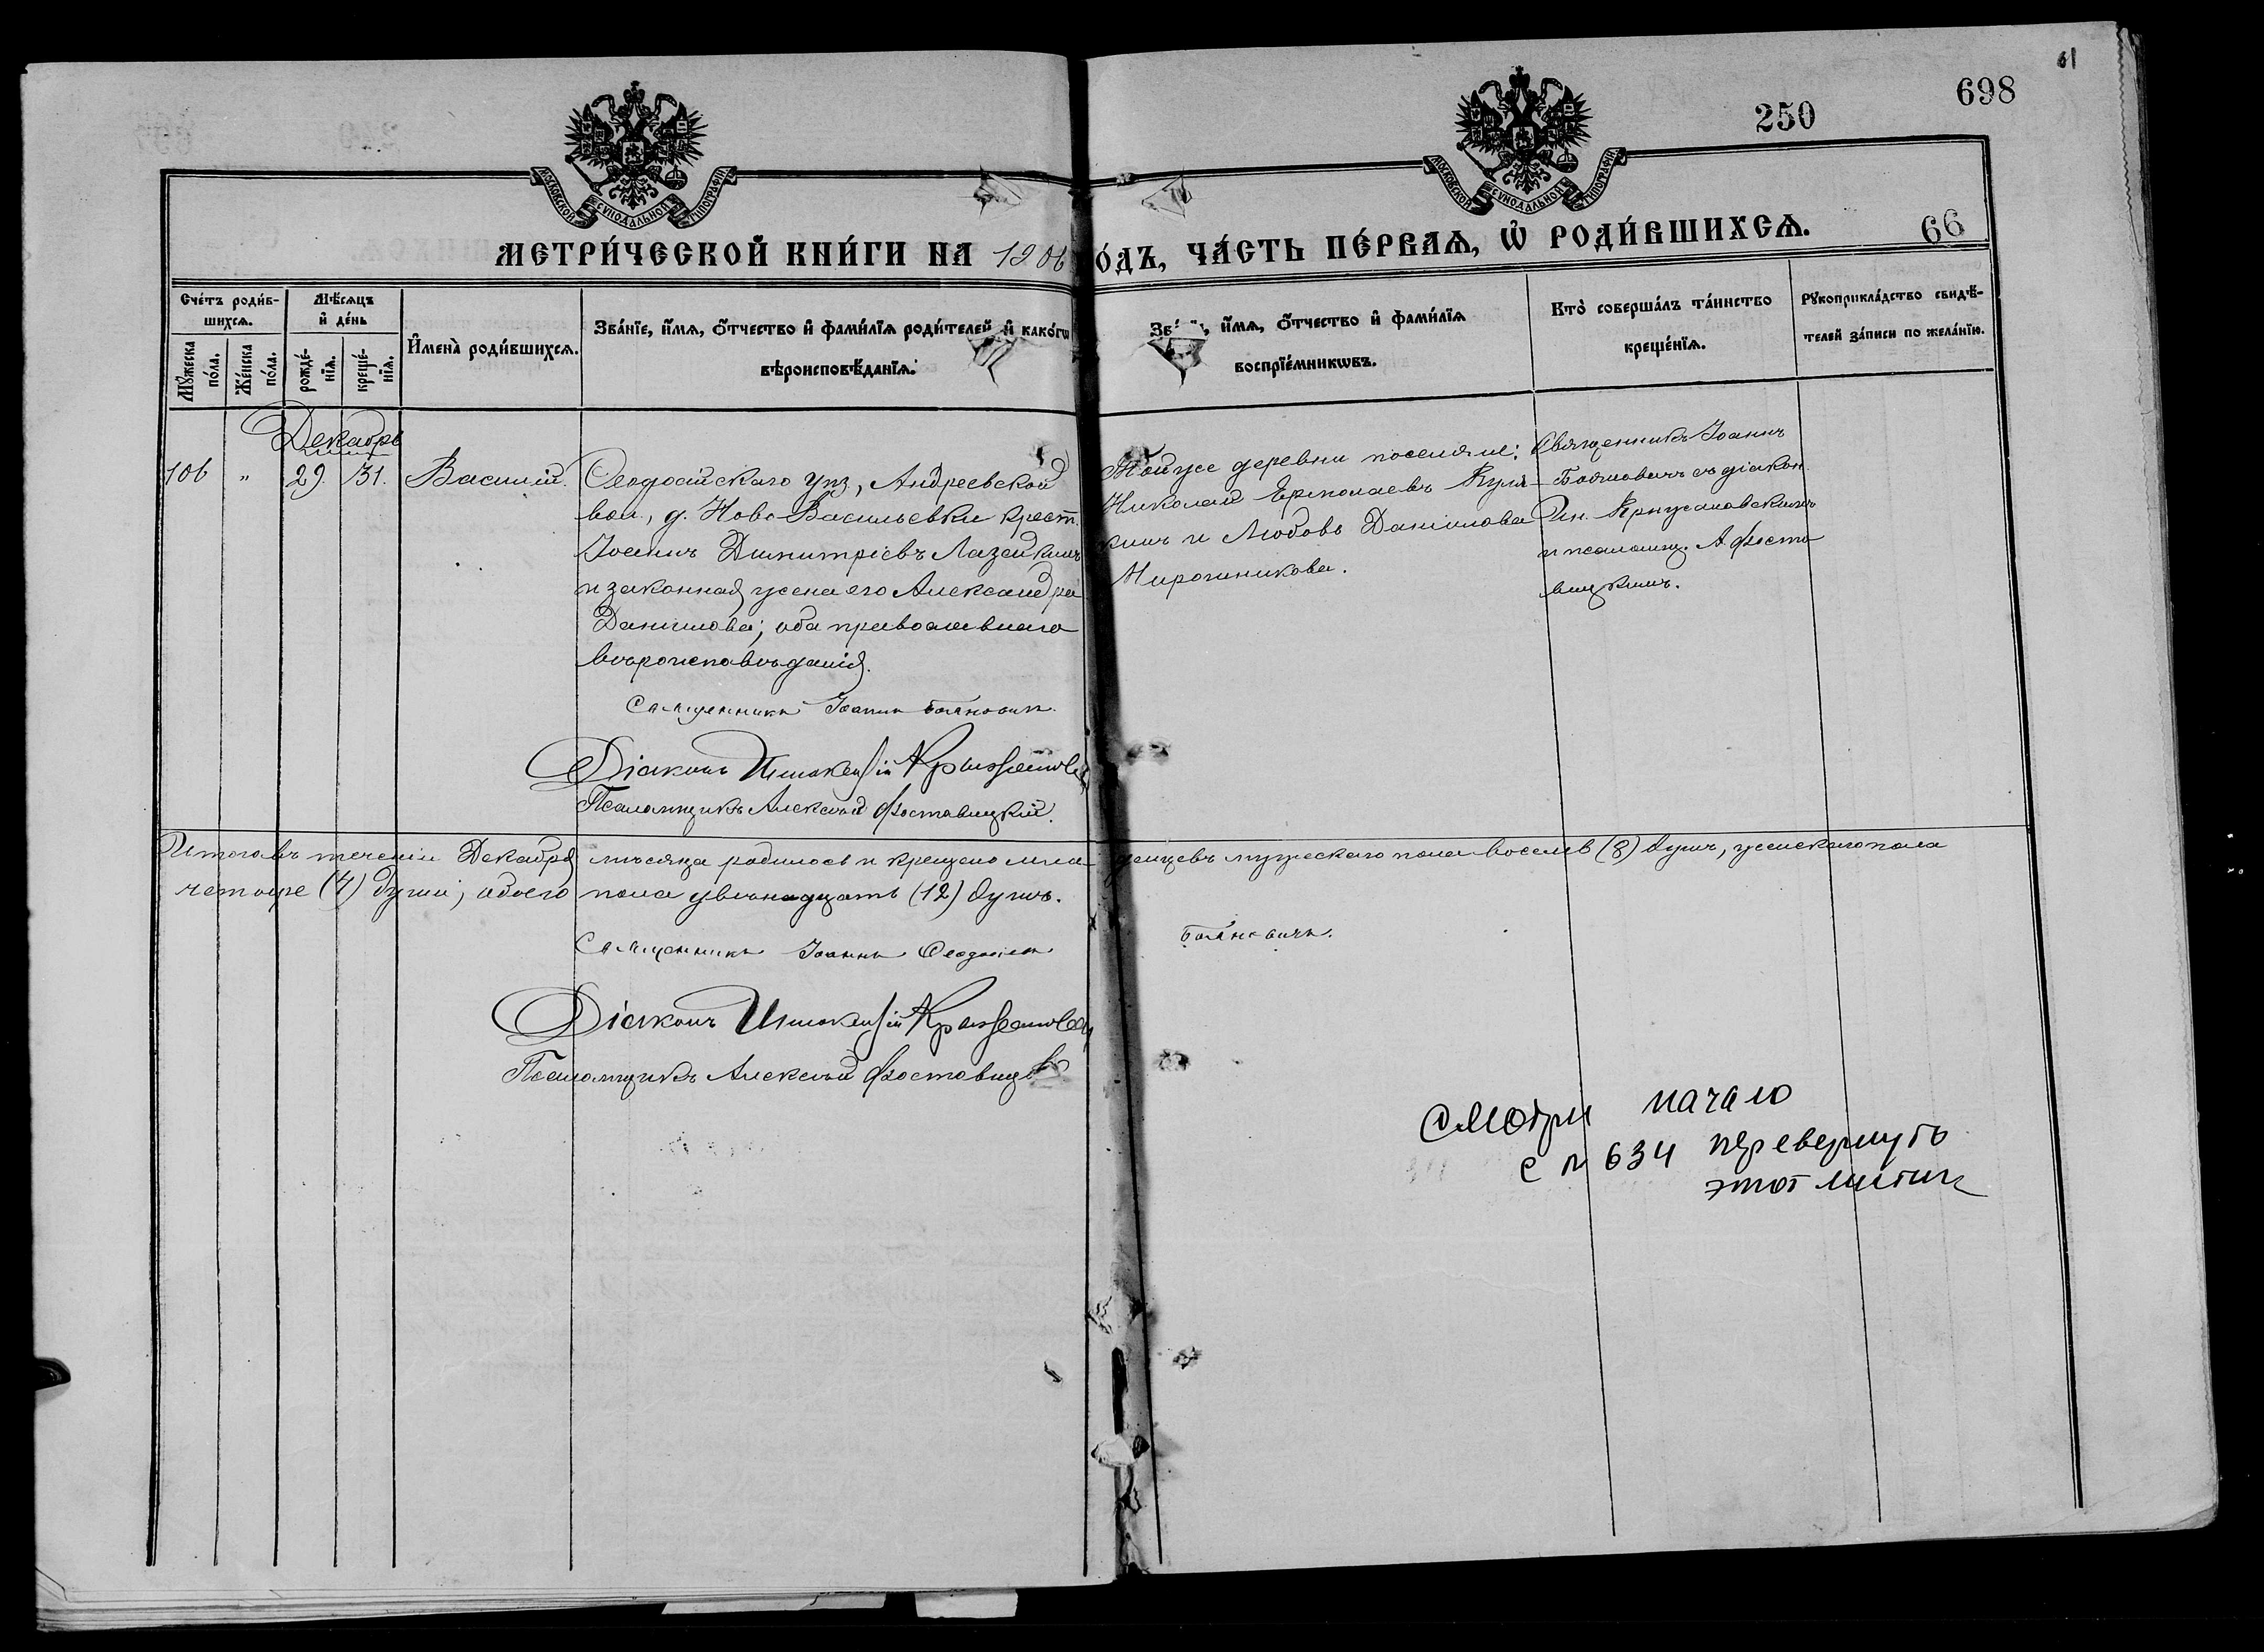 61
698
250
66
МОСКОВСКОЙ СУНОДАЛЬНОЙ ТИПОГРАФІИ
МОСКОВСКОЙ СУНОДАЛЬНОЙ ТИПОГРАФІИ
МЕТРИ́ЧЕСКОЙ КНИ́ГИ НА 1906
О́ДЪ, ЧА́СТЬ ПЕ́РВАѦ, Ѡ҆ РОДИ́ВШИХСѦ.
Сче́тъ роди́в-
шихсѧ.
Мꙋ́жеска
по́ла.
Же́нска
по́ла.
Мѣ́сѧцъ
и҆ де́нь
рожде́-
нїѧ.
креще́-
нїѧ.
И҆мена̀ роди́вшихсѧ.
Зва́нїе, и҆́мѧ, ѻ҆́тчество и҆ фами́лїѧ роди́телей и҆ како́гѡ
вѣроисповѣ́данїѧ.
и҆́мѧ, ѻ҆́тчество и҆ фами́лїѧ
воспрїе́мникѡвъ.
Кто̀ соверша́лъ та́инство
креще́нїѧ.
Рꙋкоприкла́дство свидѣ́-
телей за́писи по жела́нїю.
Декабрь
106 " 29. 31. Василій.
Ѳеодосійскаго уѣз., Андреевской
вол., д. Ново-Васильевки крест.
Іоаннъ Димитріевъ Лазейкинъ
и законная жена его Александра
Данилова; оба православнаго
вѣроисповѣданія.
Той же деревни поселяне:
Николай Ермолаевъ Куля-
кинъ и Любовь Данилова
Мирошникова.
Священникъ Іоаннъ
Бояновичъ съ діакон.
Ин. Крыжановскимъ
и псаломщ. А. Фоста-
вицкимъ.
Священникъ Іоаннъ Бояновичъ.
Діаконъ Иннокентій Крыжановскій
Псаломщикъ Алексѣй Фоставицкій.
Итого въ теченіи Декабря мѣсяца родилось и крещено мла- денцевъ мужескаго пола восемь (8) душъ, женскаго пола
четыре (4) души; обоего пола двѣнадцать (12) душъ.
Священникъ Іоаннъ Бояновичъ.
Діаконъ Иннокентій Крыжановскій
Псаломщикъ Алексѣй Фоставицкій
Смотри начало
с л 634 перевернуть
этот листик